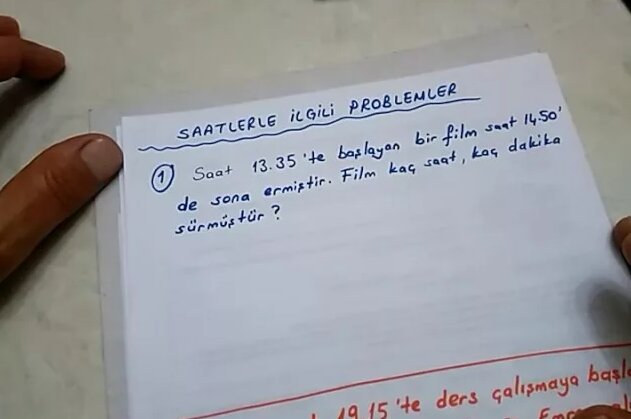 SAATLERLE İLGİLİ PROBLEMLER
① Saat 13.35'te başlayan bir film saat 14,50'
de sona ermiştir. Film kaç saat, kaç dakika
sürmüştür?
19.15'te ders çalışmaya